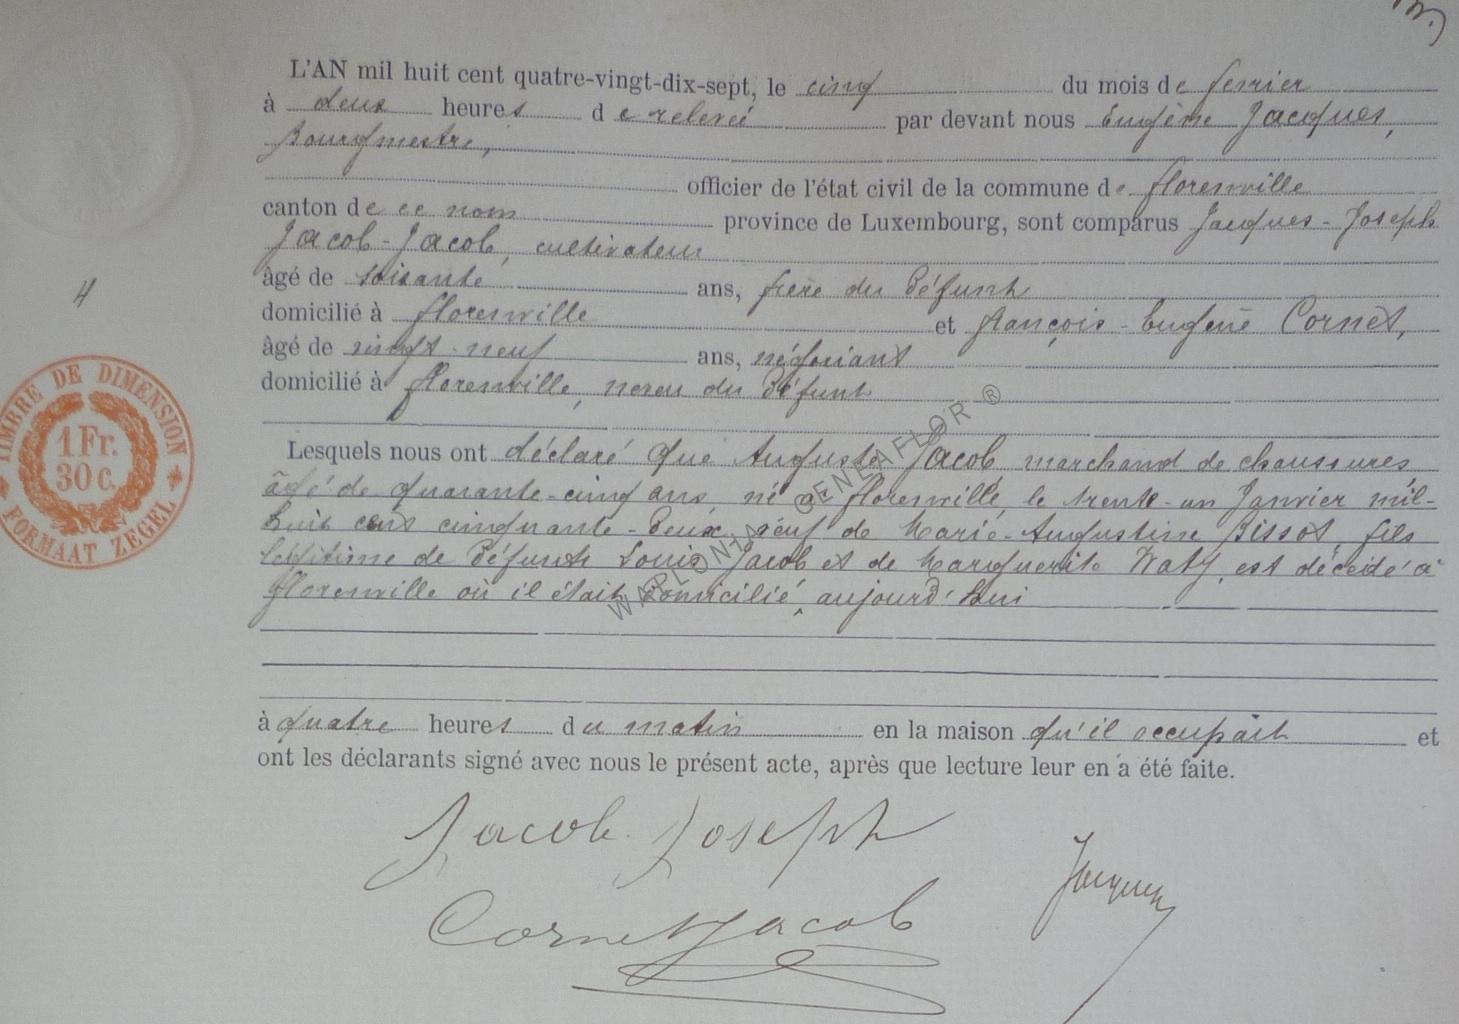 L'AN mil huit cent quatre-vingt-dix-sept, le cinq du mois de fevrier
à deux heures de relevée par devant nous Eugène Jacques,
Bourgmestre,
officier de l'état civil de la commune de florenville
canton de ce nom province de Luxembourg, sont comparus Jacques-Joseph
Jacob-Jacob, cultivateur
âgé de soixante ans, frère du défunt
4
domicilié à florenville et françois-Eugène Cornet,
âgé de vingt-neuf ans, négociant
domicilié à florenville, neveu du défunt
TIMBRE DE DIMENSION
1 Fr.
30 c.
FORMAAT ZEGEL
Lesquels nous ont déclaré que Auguste Jacob marchand de chaussures
âgé de quarante-cinq ans, né à florenville, le trente-un Janvier mil-
huit cent cinquante-deux, veuf de Marie-Augustine Bissot, fils
légitime de défunts Louis Jacob et de Marguerite Waty, est décédé à
florenville où il était domicilié, aujourd'hui
à quatre heures du matin en la maison qu'il occupait et
ont les déclarants signé avec nous le présent acte, après que lecture leur en a été faite.
Jacob Joseph
Jacques
Cornet Jacob